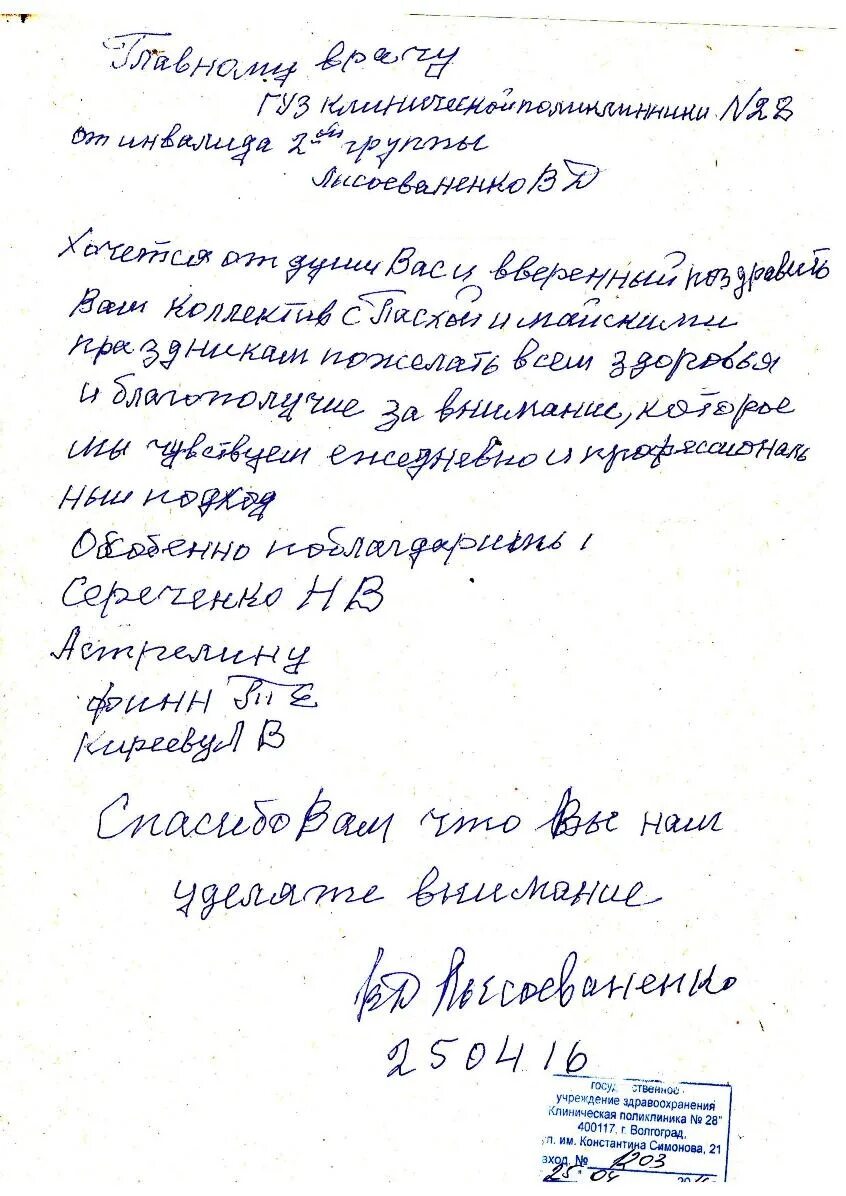 Главному врачу
ГУЗ клинической поликлинники №28
от инвалида 2ой группы
ВД
Хочется от души Вас и вверенный поздравить
Вам коллектив с Пасхой и майскими
праздникам пожелать всем здоровья
и благополучие за внимание, которое
мы чувствуем ежедневно и профессиональ
ный подход
Особенно поблагдарить
Сереченко Н В
Астрелину
Финн Т Е
Кирееву Л В
Спасибо Вам что Вы нам
уделяте внимание
ВД
250416
государственное
учреждение здравоохранения
Клиническая поликлиника № 28"
400117, г. Волгоград,
ул. им. Константина Симонова, 21
вход. № 1203
25 04